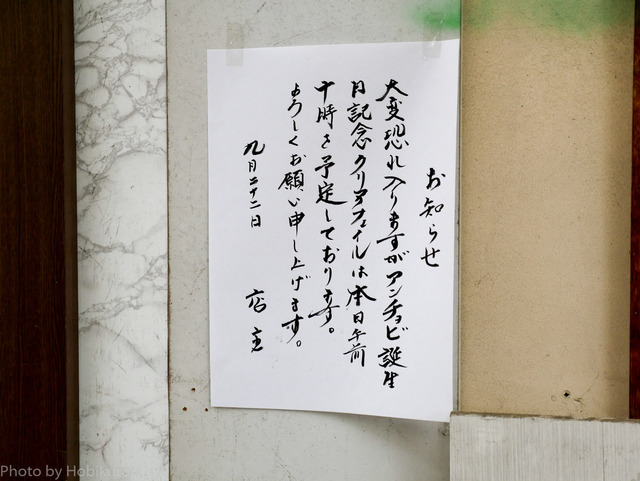 お知らせ
大変恐れ入りますがアンチョビ誕生
日記念クリアファイルは本日午前
十時を予定しております。
よろしくお願い申し上げます。
九月二十二日
店主
Photo by Hobik